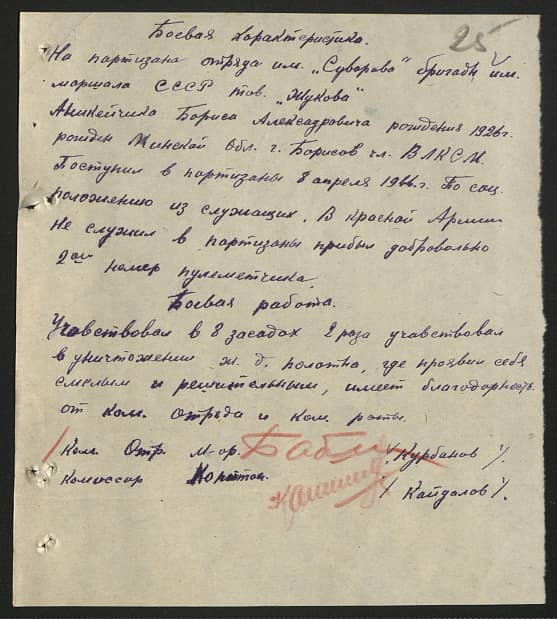 25
Боевая характеристика.
На партизана отряда им. „Суворова" бригады им.
маршала СССР тов. „Жукова"
Аникейчика Бориса Александровича рождения 1926 г.
рожден Минской Обл. г. Борисов чл. ВЛКСМ.
Поступил в партизаны 8 апреля 1944 г. По соц.
положению из служащих. В Красной Армии
не служил в партизаны прибыл добровольно
2ой номер пулеметчика.
Боевая работа.
Учавствовал в 8 засадах 2 раза учавствовал
в уничтожении ж. д. полотна, где проявил себя
смелым и решительным, имеет благодарность
от ком. отряда и ком. роты.
Ком. Отр. м-ор. /Курбанов/.
Комиссар Капитан. /Кайдалов/.